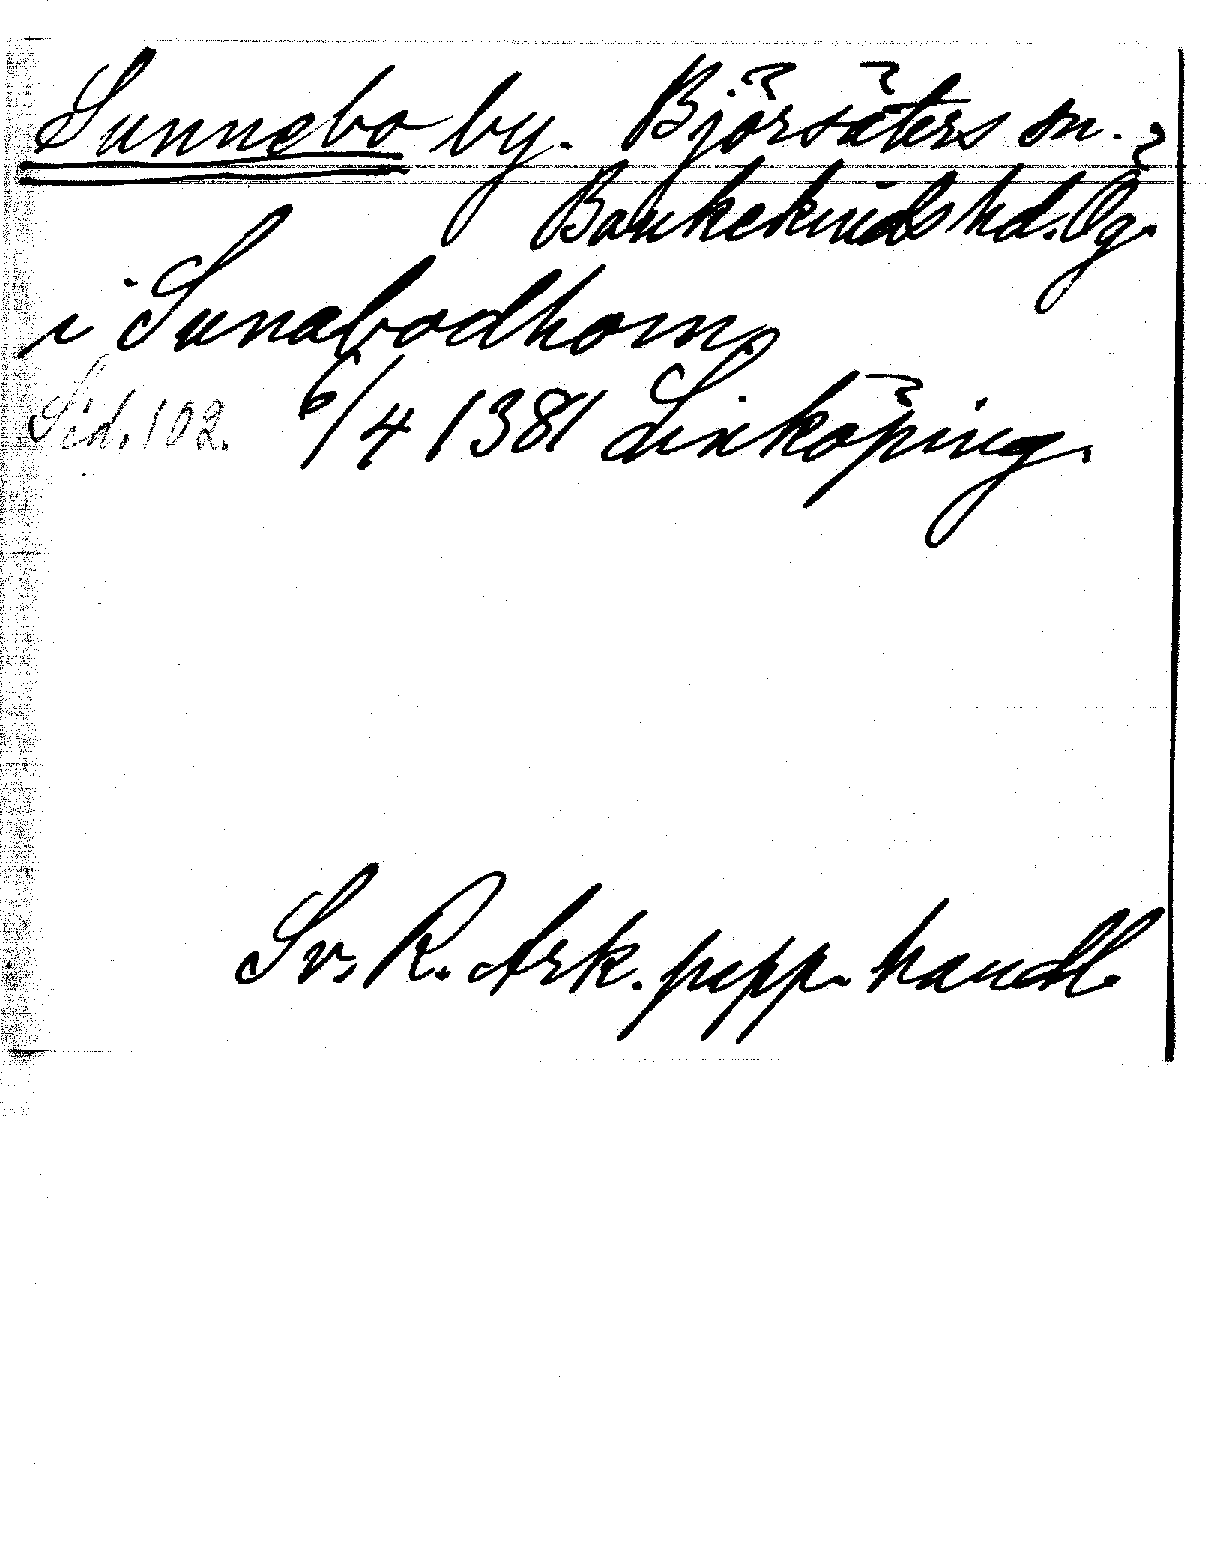 Sunnebo by. Björsäters sn.
Bankekinds hd. Ög.
i Sunabodhom
Sid. 102. 6/4 1381 Linköping.
Sv. R. Ark. papp. handl.